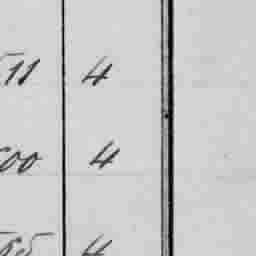 11 4
00 4
65 4